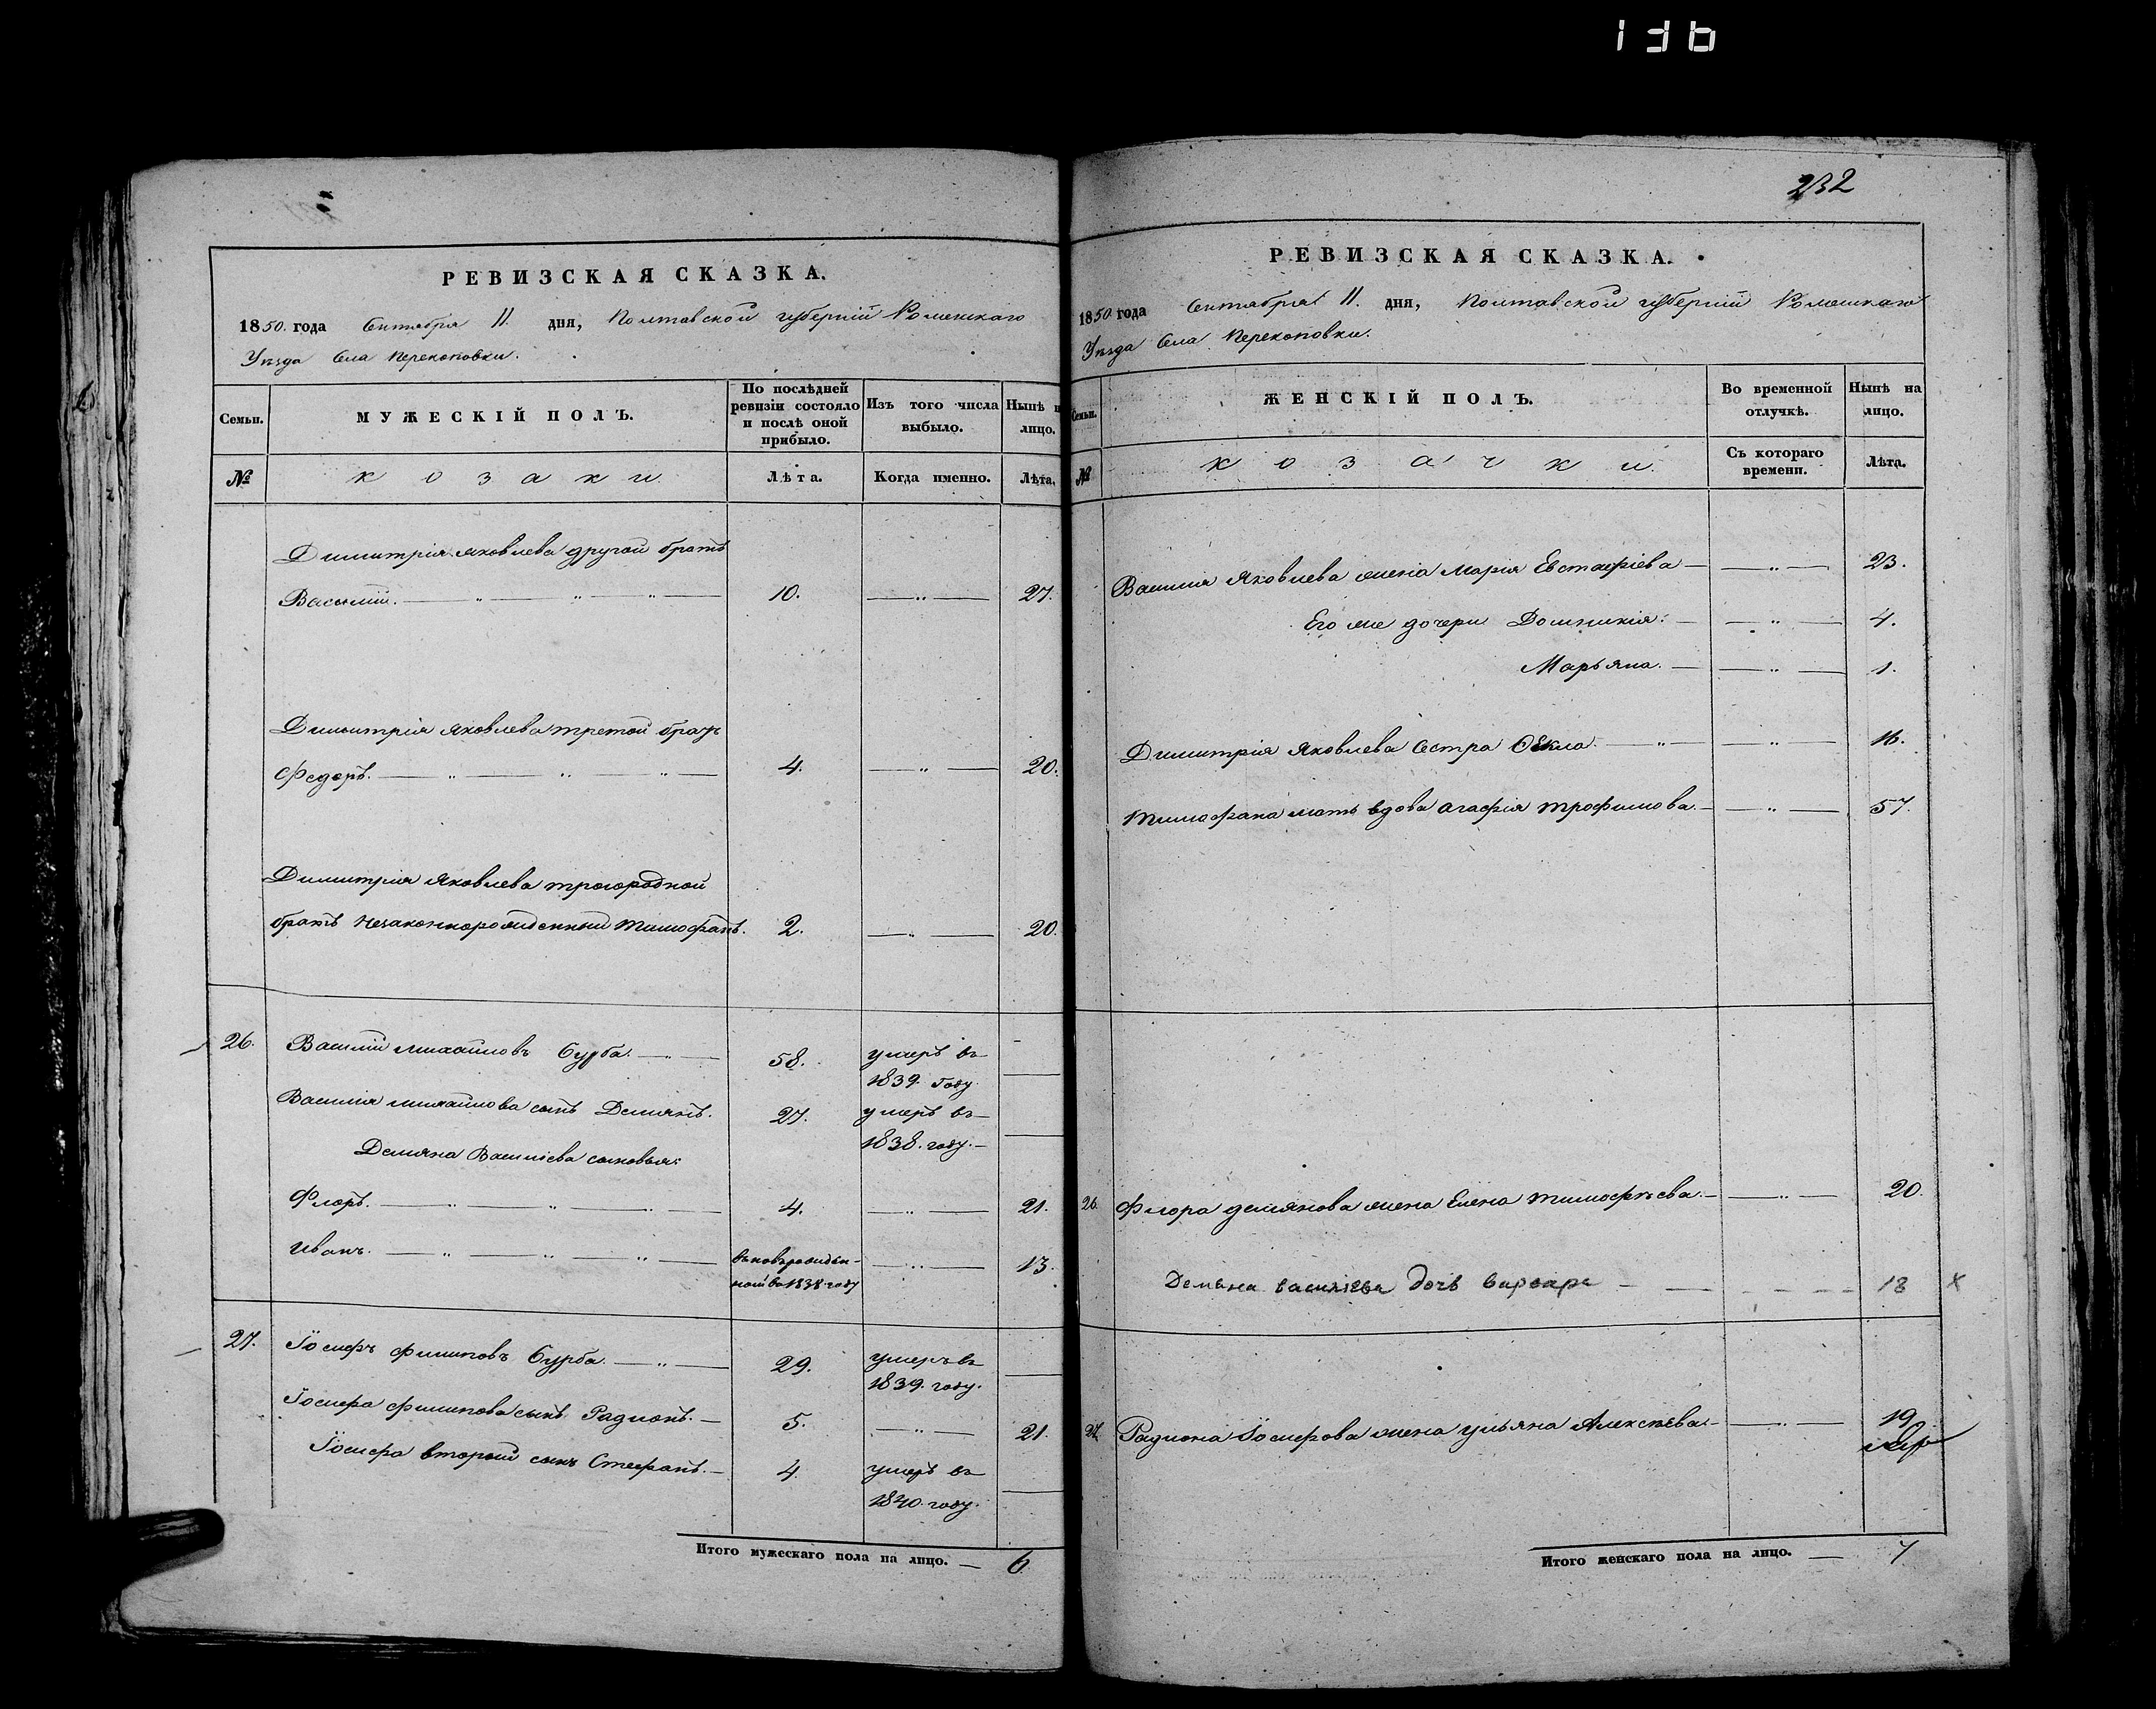 136
232
РЕВИЗСКАЯ СКАЗКА.
1850. года Сентября 11. дня, Полтавской губерніи Роменскаго
Уѣзда Села Перекоповки.
Семьи.
МУЖЕСКІЙ ПОЛЪ.
По послѣдней ревизіи состояло и послѣ оной прибыло.
Изъ того числа выбыло.
Нынѣ на лицо.
№
козаки.
Лѣта.
Когда именно.
Лѣта.
Димитрія Яковлева другой братъ
Василій. 10. 27.
Димитрія Яковлева третой братъ
Федоръ. 4. 20.
Димитрія Яковлева троюродной
братъ незаконнорожденный Тимофанъ. 2. 20.
26. Василій Михайловъ Бурба. 58. умеръ въ
1839. году.
Василія Михайлова сынъ Демянъ. 27. умеръ въ
1838. году.
Демяна Василіева сыновья:
Флоръ. 4. 21.
Иванъ. вновърожден-
ной въ 1838 году 13.
27. Іосифъ Филиповъ Бурба. 29. умеръ въ
1839. году.
Іосифа Филипова сынъ Радионъ. 5. 21.
Іосифа второй сынъ Стефанъ. 4. умеръ въ
1840. году.
Итого мужескаго пола на лицо. 6
РЕВИЗСКАЯ СКАЗКА.
1850 года Сентября 11. дня, Полтавской губерніи Роменскаго
Уѣзда Села Перекоповки.
Семьи.
ЖЕНСКІЙ ПОЛЪ.
Во временной отлучкѣ.
Нынѣ на лицо.
№
козачки.
Съ котораго времени.
Лѣта.
Василія Яковлева жена Марія Евстафіева 23.
Его же дочери Домникія: 4.
Марьяна. 1.
Димитрія Яковлева Сестра Фекла. 16.
Тимофана мать вдова Агафія Трофимова. 57.
26. Флора Демянова жена Елена Тимофѣева. 20.
Демьяна василіева дочь варвара 13 х
27. Радиона Іосифова жена Ульяна Алексѣева 19
Итого женскаго пола на лицо. 7